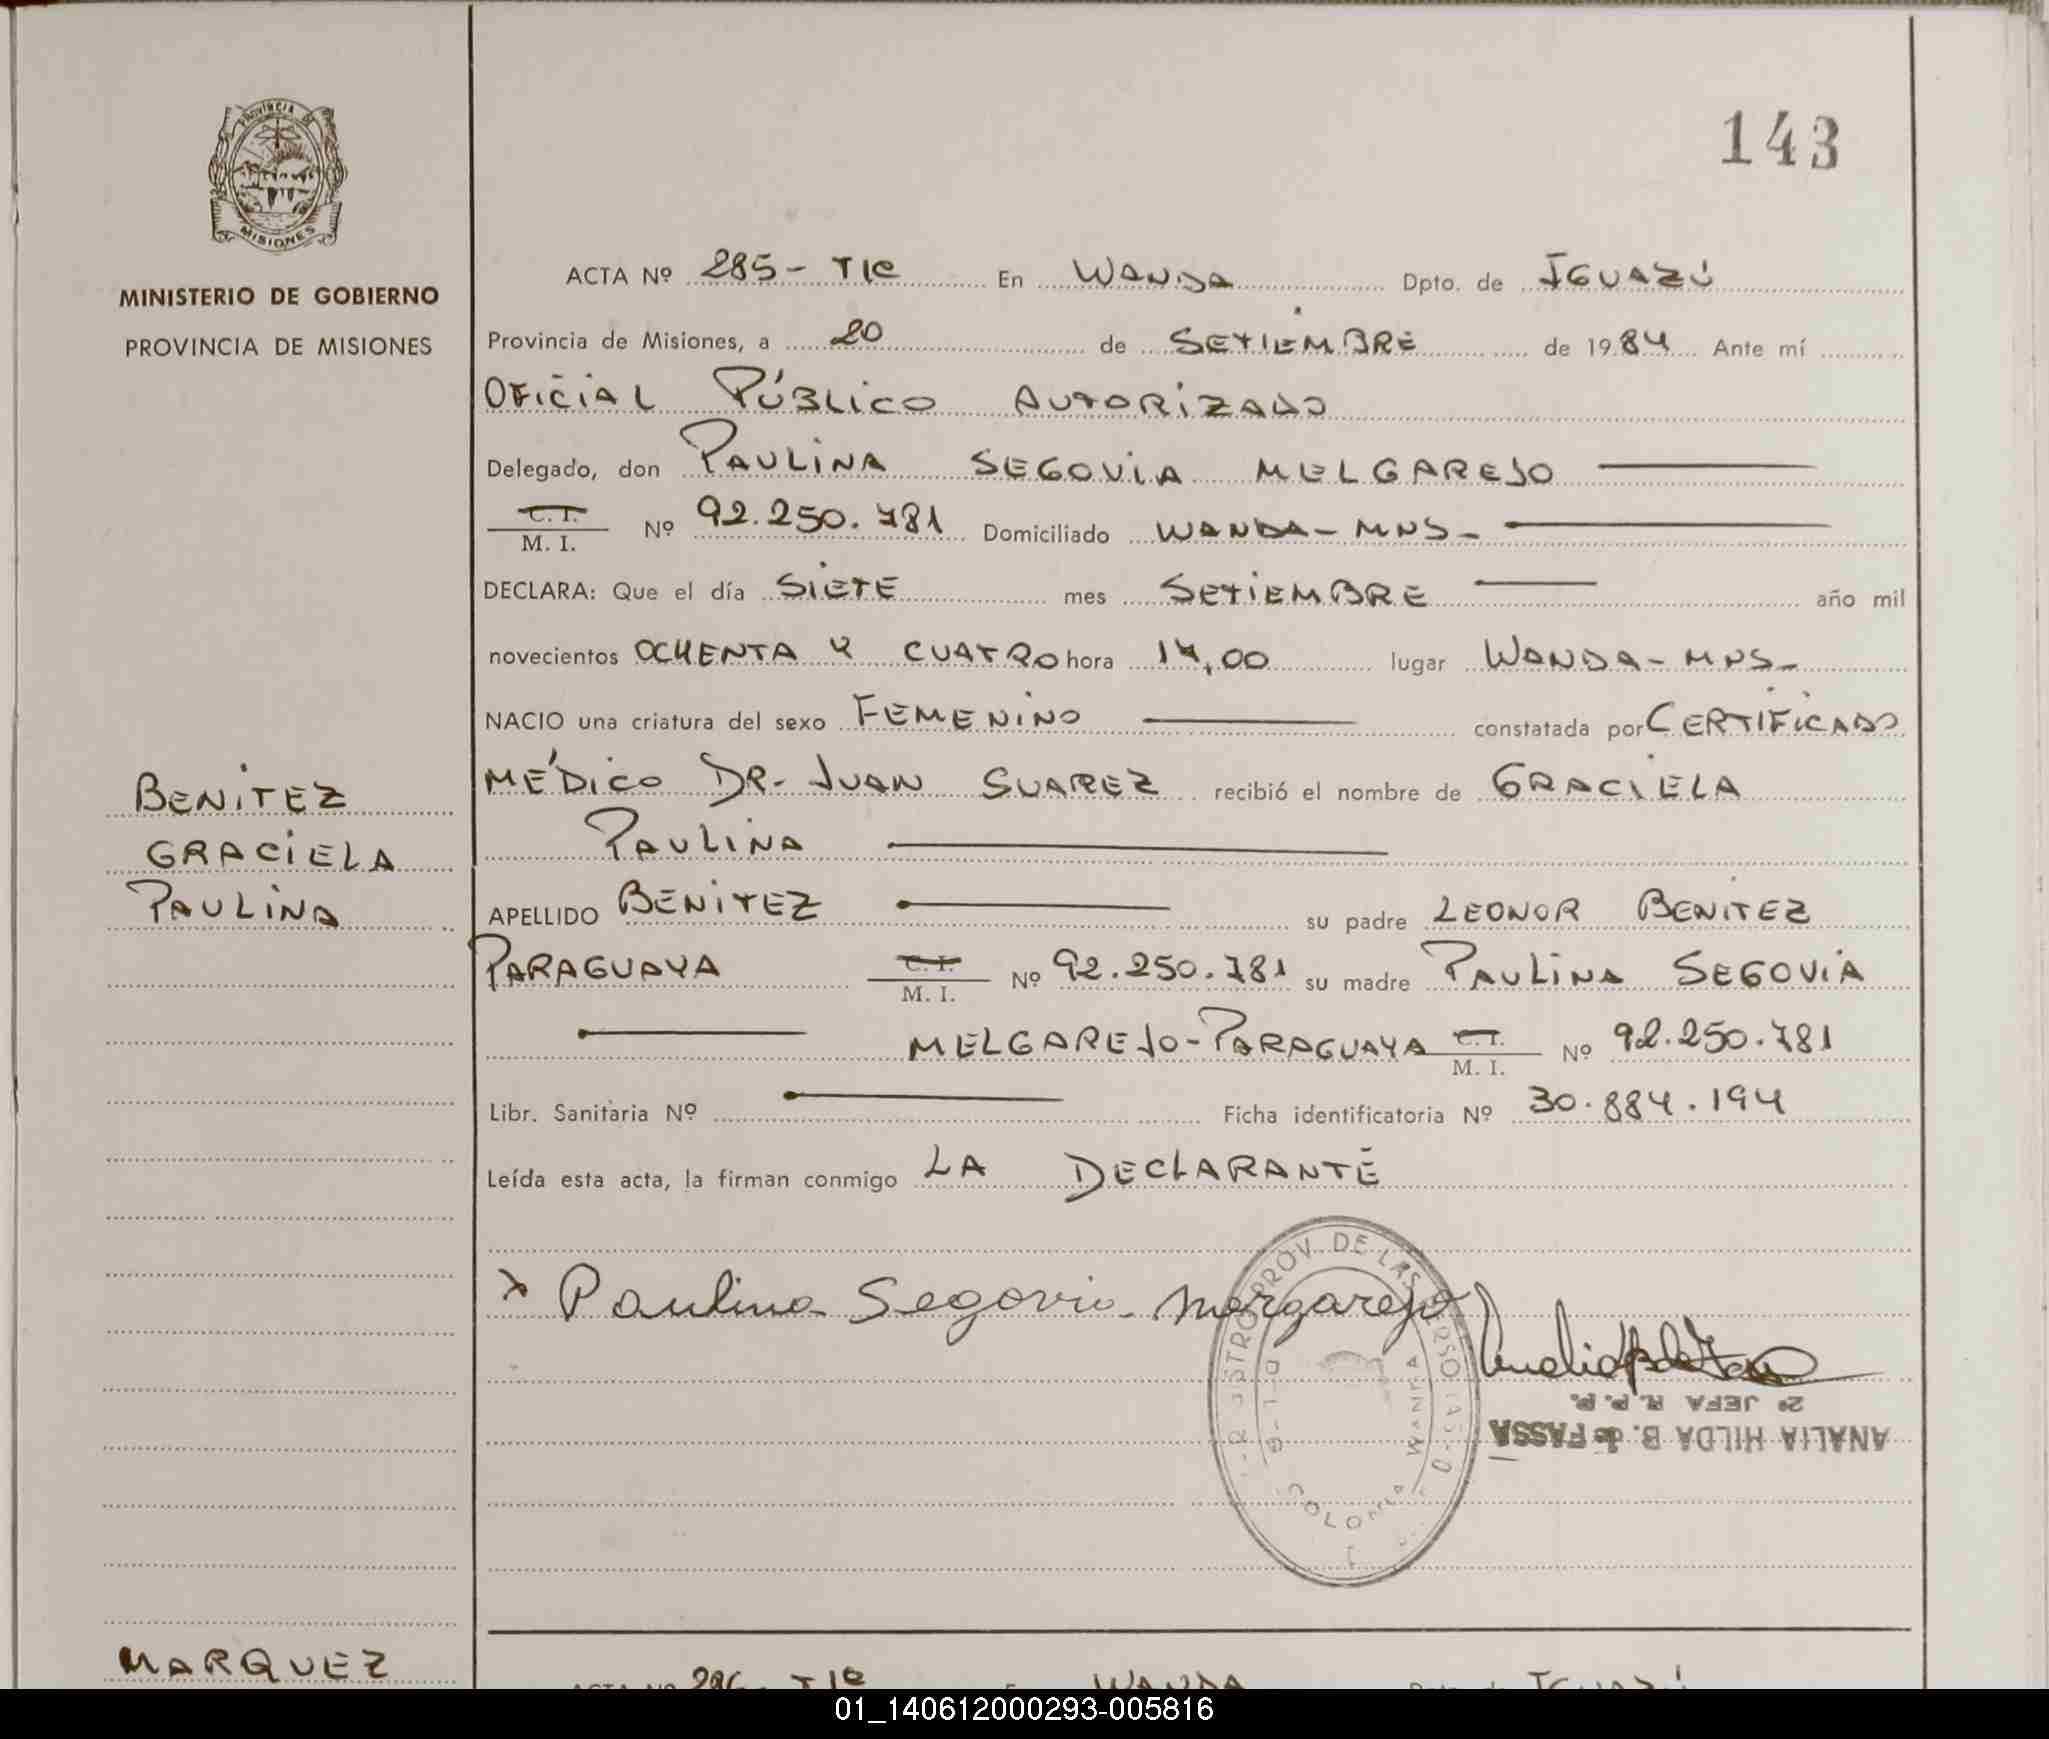 PROVINCIA DE
MISIONES
MINISTERIO DE GOBIERNO
PROVINCIA DE MISIONES
143
ACTA Nº 285- TIC En WANDA Dpto. de IGUAZÚ
Provincia de Misiones, a 20 de SETIEMBRE de 1984 Ante mí
OFICIAL PÚBLICO AUTORIZADO
Delegado, don PAULINA SEGOVIA MELGAREJO
C. I.
M. I. Nº 92.250.781 Domiciliado WANDA-MNS-
DECLARA: Que el día SIETE mes SETIEMBRE año mil
novecientos OCHENTA Y CUATRO hora 17,00 lugar WANDA-MNS-
NACIO una criatura del sexo FEMENINO constatada por CERTIFICADO
MÉDICO DR- JUAN SUAREZ recibió el nombre de GRACIELA
PAULINA
BENITEZ
GRACIELA
PAULINA
APELLIDO BENITEZ su padre LEONOR BENITEZ
PARAGUAYA C. I. M. I. Nº 92.250.781 su madre PAULINA SEGOVIA
MELGAREJO-PARAGUAYA C. I. M. I. Nº 92.250.781
Libr. Sanitaria Nº Ficha identificatoria Nº 30.884.194
Leída esta acta, la firman conmigo LA DECLARANTE
x Paulina Segovia Mergarejo
PROV. DE LAS PERSONAS
COLONIA WANDA
2º JEFA R. P. P.
ANALIA HILDA B. de FASSA
MARQUEZ
ACTA Nº 286- TIC En WANDA Dpto. de IGUAZÚ
01_140612000293-005816